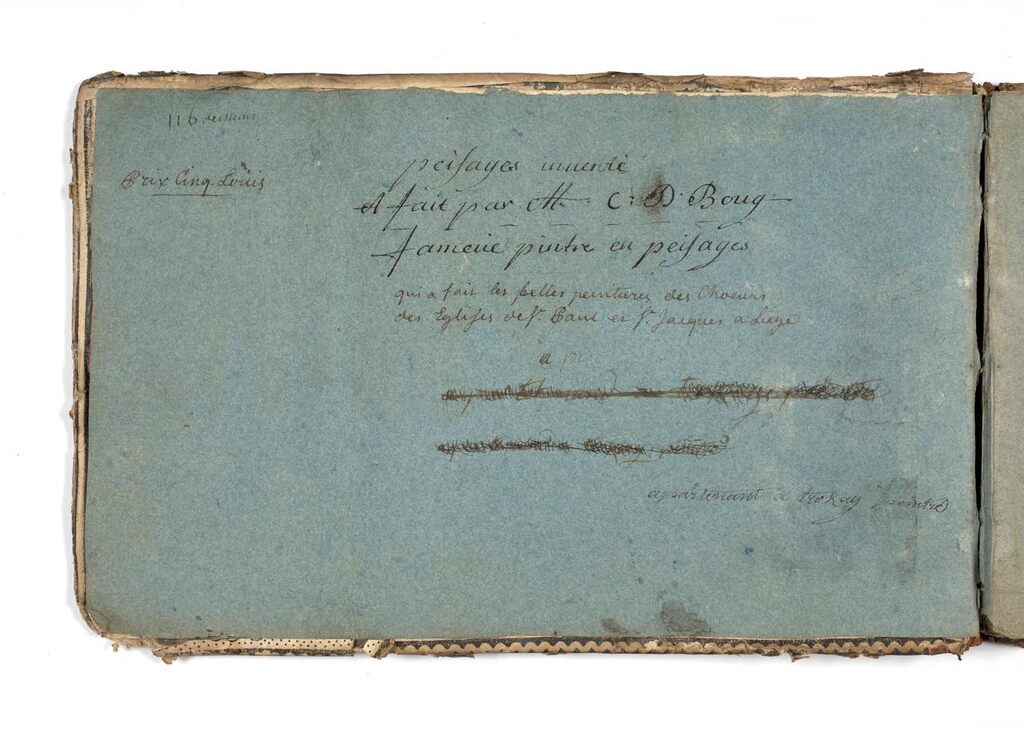 116 dessins
Prix Cinq Louis
peisages inventé
et fait par Mr C: D. Boug
fameué pintre en peisages
qui a fait les belles peintures des Choeurs
des Eglises de St. Paul et St. Jacques a Liege
a pe
apartenant a trokay peintre